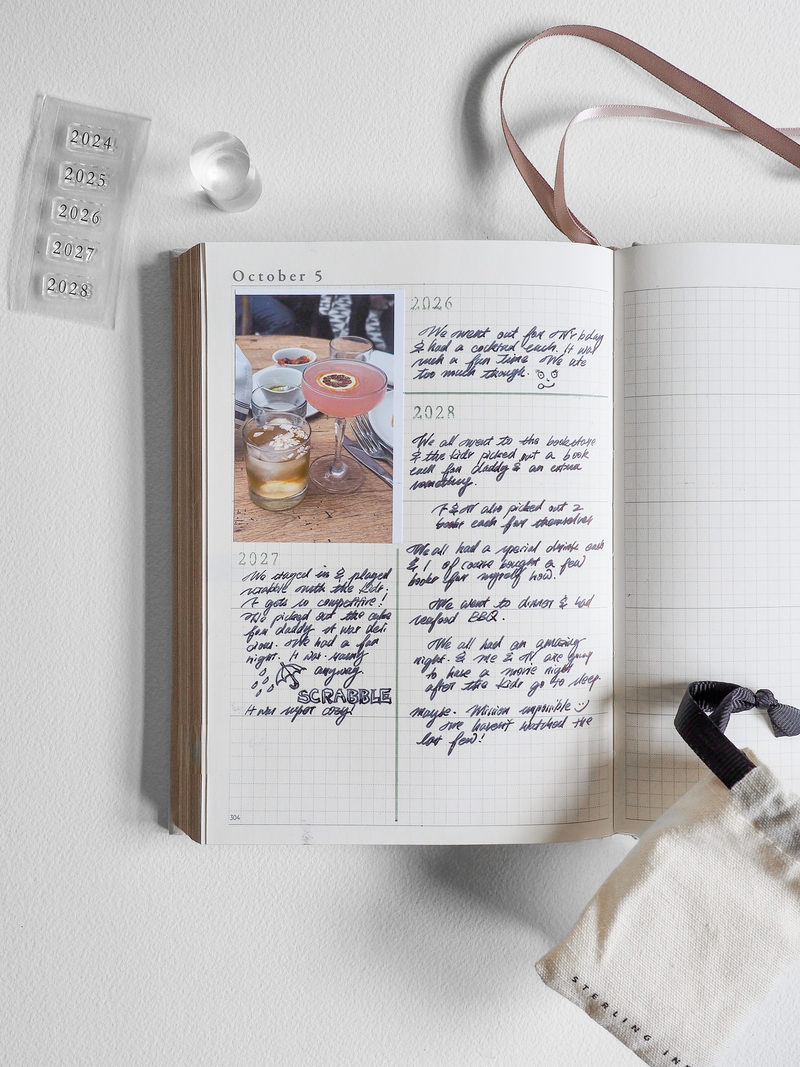 2024
2025
2026
2027
2028
October 5
2026
We went out for bday
& had a cocktail each. It was
such a fun time. We ate
too much though.
2028
We all went to the bookstore
& the kids picked out a book
each for daddy & an extra
something.
also picked out 2
books each for themselves
We all had a special drink each
& I of coarse bought a few
books for myself
We went to dinner & had
seafood BBQ.
We all had an amazing
night. & me & are going
to have a movie night
after the kids go to sleep.
maybe. Mission impossible :)
we haven't watched the
last few!
2027
We stayed in & played
scrabble with the kids.
It gets so competitive!
We picked out the cake
for daddy it was deli
cious. We had a fun
night. It was rainy
anyway.
SCRABBLE
It was super cozy!
304
STERLING IN